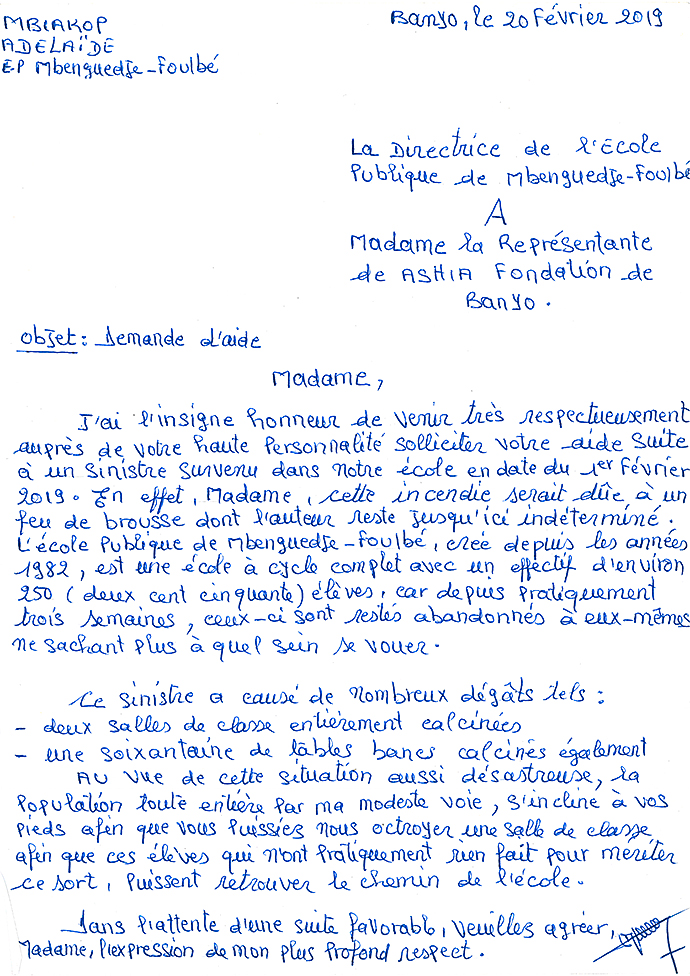 MBIAKOP
ADELAÏDE
EP Mbenguedje-Foulbé
Banyo, le 20 Février 2019
La Directrice de l'Ecole
Publique de Mbenguedje-Foulbé
A
Madame la Représentante
de ASHIA Fondation de
Banyo.
Objet : Demande d'aide
Madame,
J'ai l'insigne honneur de venir très respectueusement
auprès de votre haute Personnalité solliciter votre aide suite
à un sinistre survenu dans notre école en date du 1er Février
2019. En effet, Madame, cette incendie serait dûe à un
feu de brousse dont l'auteur reste jusqu'ici indéterminé.
L'école Publique de Mbenguedje-Foulbé, créé depuis les années
1982, est une école à cycle complet avec un effectif d'environ
250 (deux cent cinquante) élèves, car depuis pratiquement
trois semaines, ceux-ci sont restés abandonnés à eux-mêmes
ne sachant plus à quel sein se vouer.
Ce sinistre a causé de nombreux dégâts tels :
- deux salles de classe entièrement calcinées
- une soixantaine de tables bancs calcinés également
Au vue de cette situation aussi désastreuse, la
population toute entière par ma modeste voie, s'incline à vos
pieds afin que vous puissiez nous octroyer une salle de classe
afin que ces élèves qui n'ont pratiquement rien fait pour mériter
ce sort, puissent retrouver le chemin de l'école.
Dans l'attente d'une suite favorable, veuilles agréer,
Madame, l'expression de mon plus profond respect.